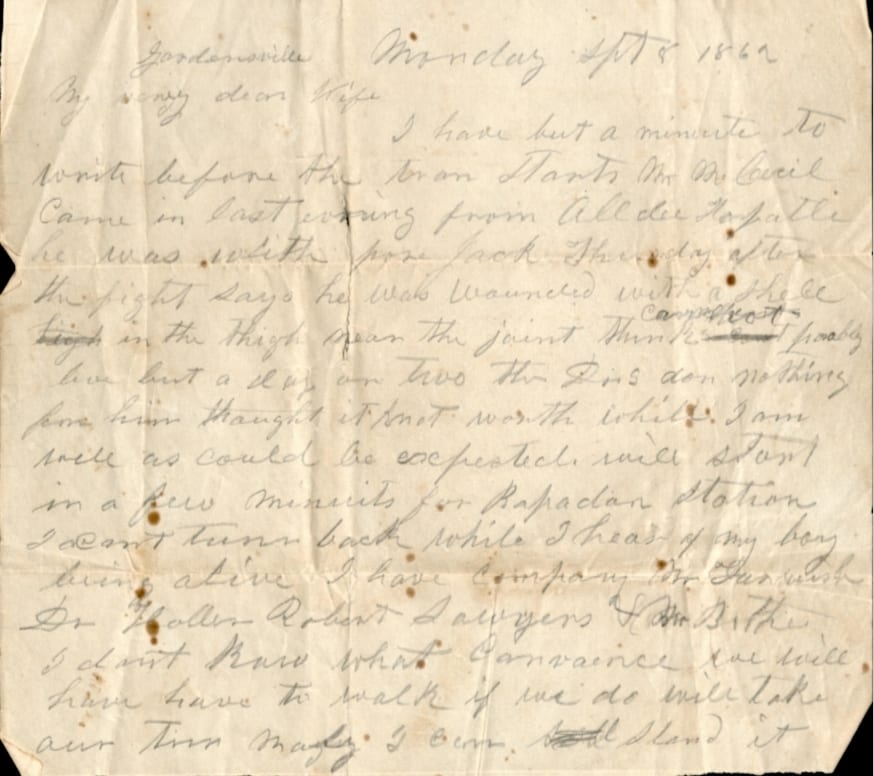 Gordensville Monday Spt 8 1862
My very dear Wife
I have but a minuite to
write before the tran starts Mr Mc Cecil
Came in last evning from All dee
he was whith pore Jack Thursday after
the fight says he was wounded with a shell
in the thigh near the joint thinks cannot
live but a day or two the Drs don nothing
for him thought it not worth while. I am
well as could be expected. will start
in a few minuits for Rapadan Station
I cant turn back while I hear of my boy
being alive I have company Mr
Dr Holler Robert Sawyers & Mr
I dont know what Convaence we will
have have to walk if we do will take
our time I can stand it